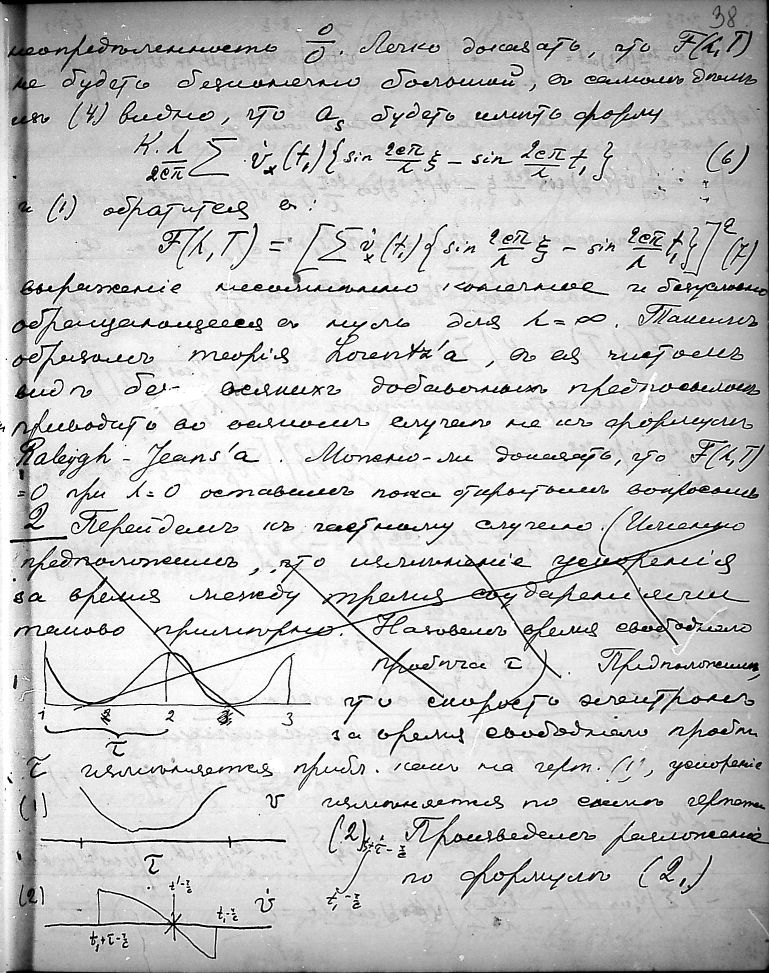 38
неопредѣленность 0/0. Легко доказать, что F(λ,T)
не будетъ безконечно большой, въ самомъ дѣлѣ
изъ (4) видно, что a_s будетъ имѣть форму
K.λ/2cπ ∑ v̇ₓ(t₁){sin 2cπ/λ ξ − sin 2cπ/λ t₁} (6)
и (1) обратится въ:
F(λ,T) = [∑ v̇ₓ(t₁){sin 2cπ/λ ξ − sin 2cπ/λ t₁}]² (7)
выраженіе несомнѣнно конечное и безусловно
обращающееся въ нуль для λ=∞. Такимъ
образомъ теорія Lorentz'a, въ ея чистомъ
видѣ без всякихъ добавочныхъ предпосылокъ
приводитъ во всякомъ случаѣ не къ формулѣ
Raleygh-Jeans'a. Можно-ли доказать, что F(λ,T)
=0 при λ=0 оставимъ пока открытымъ вопросомъ
2 Перейдемъ къ частному случаю. (Именно
предположимъ, что измѣненіе ускоренія
за время между тремя соудареніями
таково примѣрно. Назовемъ время свободнаго
пробѣга τ). Предположимъ,
что скорость электрона
1 2 3
за время свободнаго пробѣга
τ
τ измѣняется прибл. какъ на черт. (1), ускореніе
(1) v измѣняется по схемѣ чертежа
τ
(2). Произведемъ разложеніе
по формулѣ (2₁)
(2) t'-r/c v̇ t₁-r/c
t₁+τ-r/c t₁-r/c